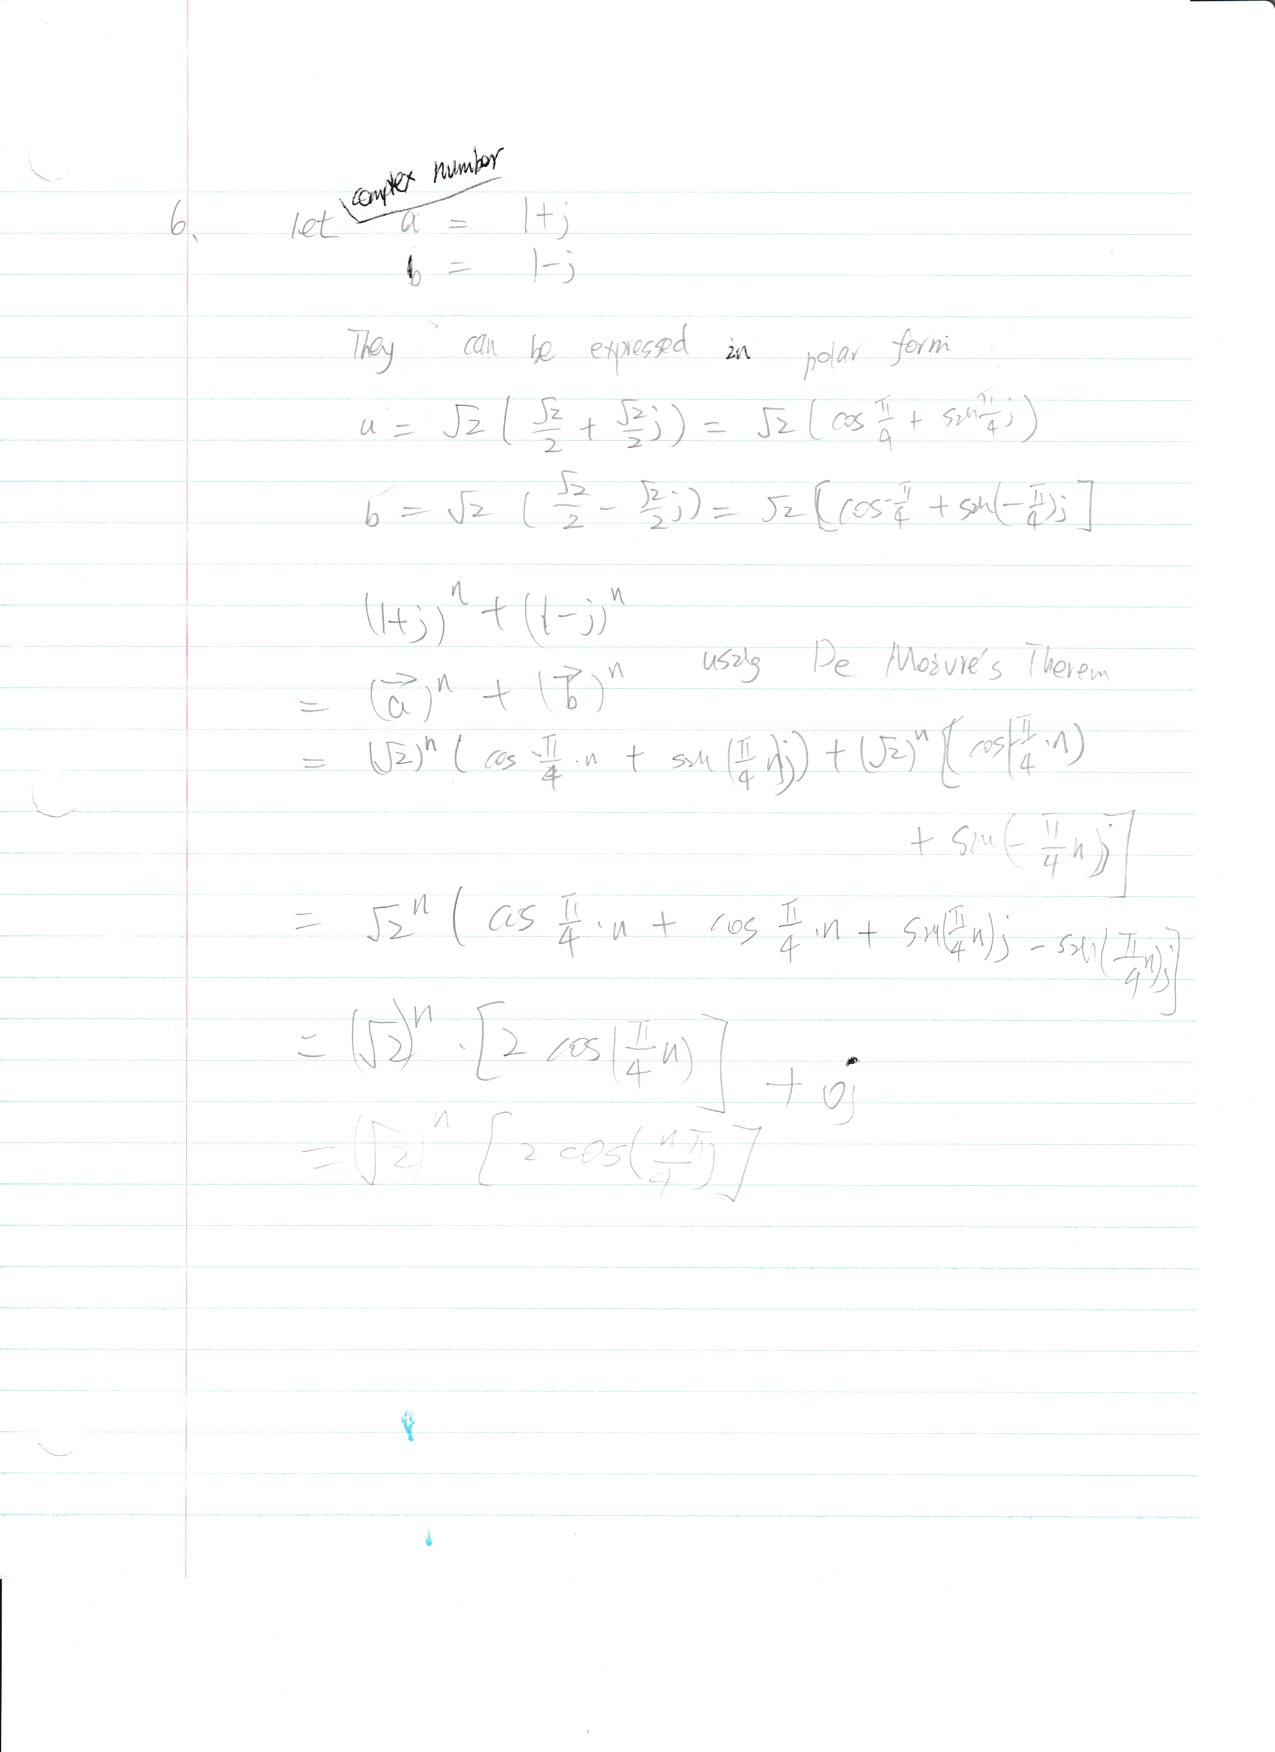 complex number
6. let a = 1+j
b = 1-j
They can be expressed in polar form
a = √2 ( √2/2 + √2/2 j) = √2 ( cos π/4 + sin π/4 j)
b = √2 ( √2/2 - √2/2 j) = √2 [cos -π/4 + sin(-π/4)j ]
(1+j)^n + (1-j)^n
using De Moivre's Therem
= (a⃗)^n + (b⃗)^n
= (√2)^n ( cos π/4 · n + sin (π/4 n)j) + (√2)^n [cos(-π/4 · n)
+ sin(- π/4 n)j]
= √2^n ( cos π/4 · n + cos π/4 · n + sin(π/4 n)j - sin(π/4 n)j]
= (√2)^n · [2 cos(π/4 n)] + 0j
= (√2)^n [2 cos(nπ/4)]